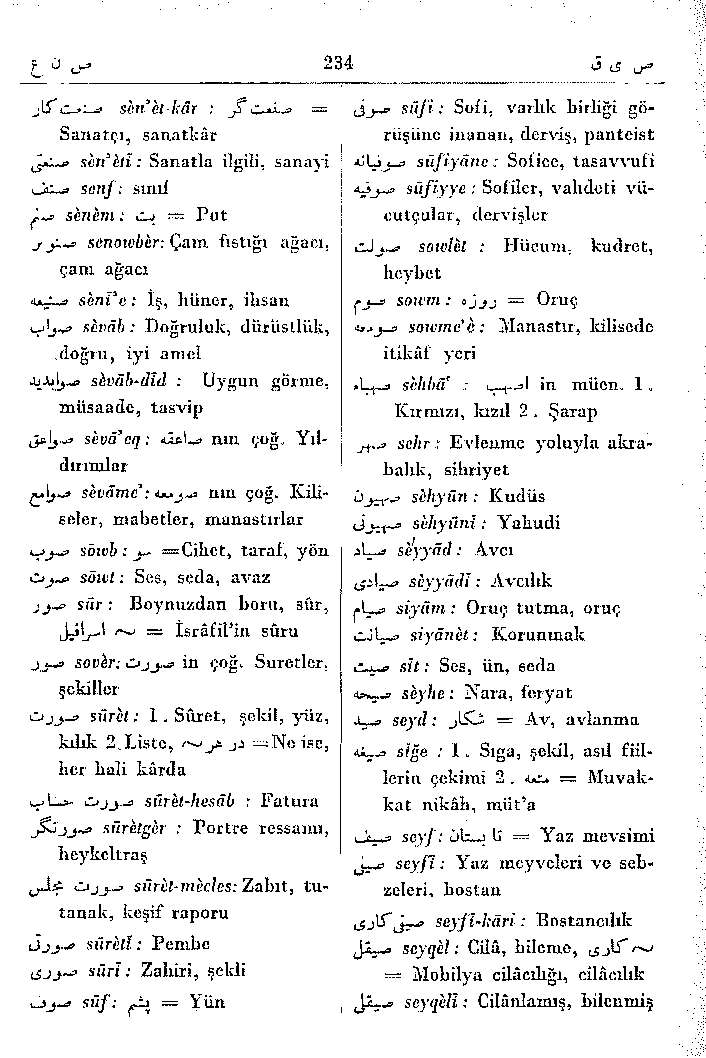 ص ن ع 234 ص ی ق
صنعت کار sèn’èt-kâr : صنعت گر =
Sanatçı, sanatkâr
صنعتی sèn’ètî : Sanatla ilgili, sanayi
صنف senf : sınıf
صنم sènèm : بت = Put
صنوبر sènowbèr: Çam fıstığı ağacı,
çam ağacı
صنیعه sènî’e : İş, hüner, ihsan
صواب sèvâb : Doğruluk, dürüstlük,
doğru, iyi amel
صوابدید sèvâb-dîd : Uygun görme,
müsaade, tasvip
صواعق sèvâ’eq : صاعقه nın çoğ. Yıl-
dırımlar
صوامع sèvâme’: صومعه nın çoğ. Kili-
seler, mabetler, manastırlar
صوب sōwb : سو =Cihet, taraf, yön
صوت sōwt : Ses, seda, avaz
صور sûr : Boynuzdan boru, sûr,
~ اسرافیل = İsrâfil’in sûru
صور sovèr: صورت in çoğ. Suretler,
şekiller
صورت sûrèt : 1. Sûret, şekil, yüz,
kılık 2. Liste, در هر ~ =Ne ise,
her hali kârda
صورت حساب sûrèt-hesâb : Fatura
صورتگر sûrètgèr : Portre ressamı,
heykeltraş
صورت مجلس sûrèt-mècles: Zabıt, tu-
tanak, keşif raporu
صورتی sûrètî : Pembe
صوری sûrî : Zahiri, şekli
صوف sûf : پشم = Yün
صوفی sûfî : Sofi, varlık birliği gö-
rüşüne inanan, derviş, panteist
صوفیانه sûfiyâne : Sofice, tasavvufi
صوفیه sûfiyye : Sofiler, vahdeti vü-
cutçular, dervişler
صولت sowlèt : Hücum, kudret,
heybet
صوم sowm : روزه = Oruç
صومعه sowme’è : Manastır, kilisede
itikâf yeri
صهباء sèhbâ’ : اصهب in müen. 1.
Kırmızı, kızıl 2. Şarap
صهر sehr : Evlenme yoluyla akra-
balık, sihriyet
صهیون sèhyûn : Kudüs
صهیونی sèhyûnî : Yahudi
صیاد sèyyâd : Avcı
صیادی sèyyâdî : Avcılık
صیام siyâm : Oruç tutma, oruç
صیانت siyânèt : Korunmak
صیت sît : Ses, ün, seda
صیحه sèyhe : Nara, feryat
صید seyd : شکار = Av, avlanma
صیغه sîğe : 1. Sıga, şekil, asıl fiil-
lerin çekimi 2. متعه = Muvak-
kat nikâh, müt’a
صیف seyf : تابستان = Yaz mevsimi
صیفی seyfî : Yaz meyveleri ve seb-
zeleri, bostan
صیفی کاری seyfî-kâri : Bostancılık
صیقل seyqèl : Cilâ, bileme, ~ کاری
= Mobilya cilâcılığı, cilâcılık
صیقلی seyqèlî : Cilânlamış, bilenmiş